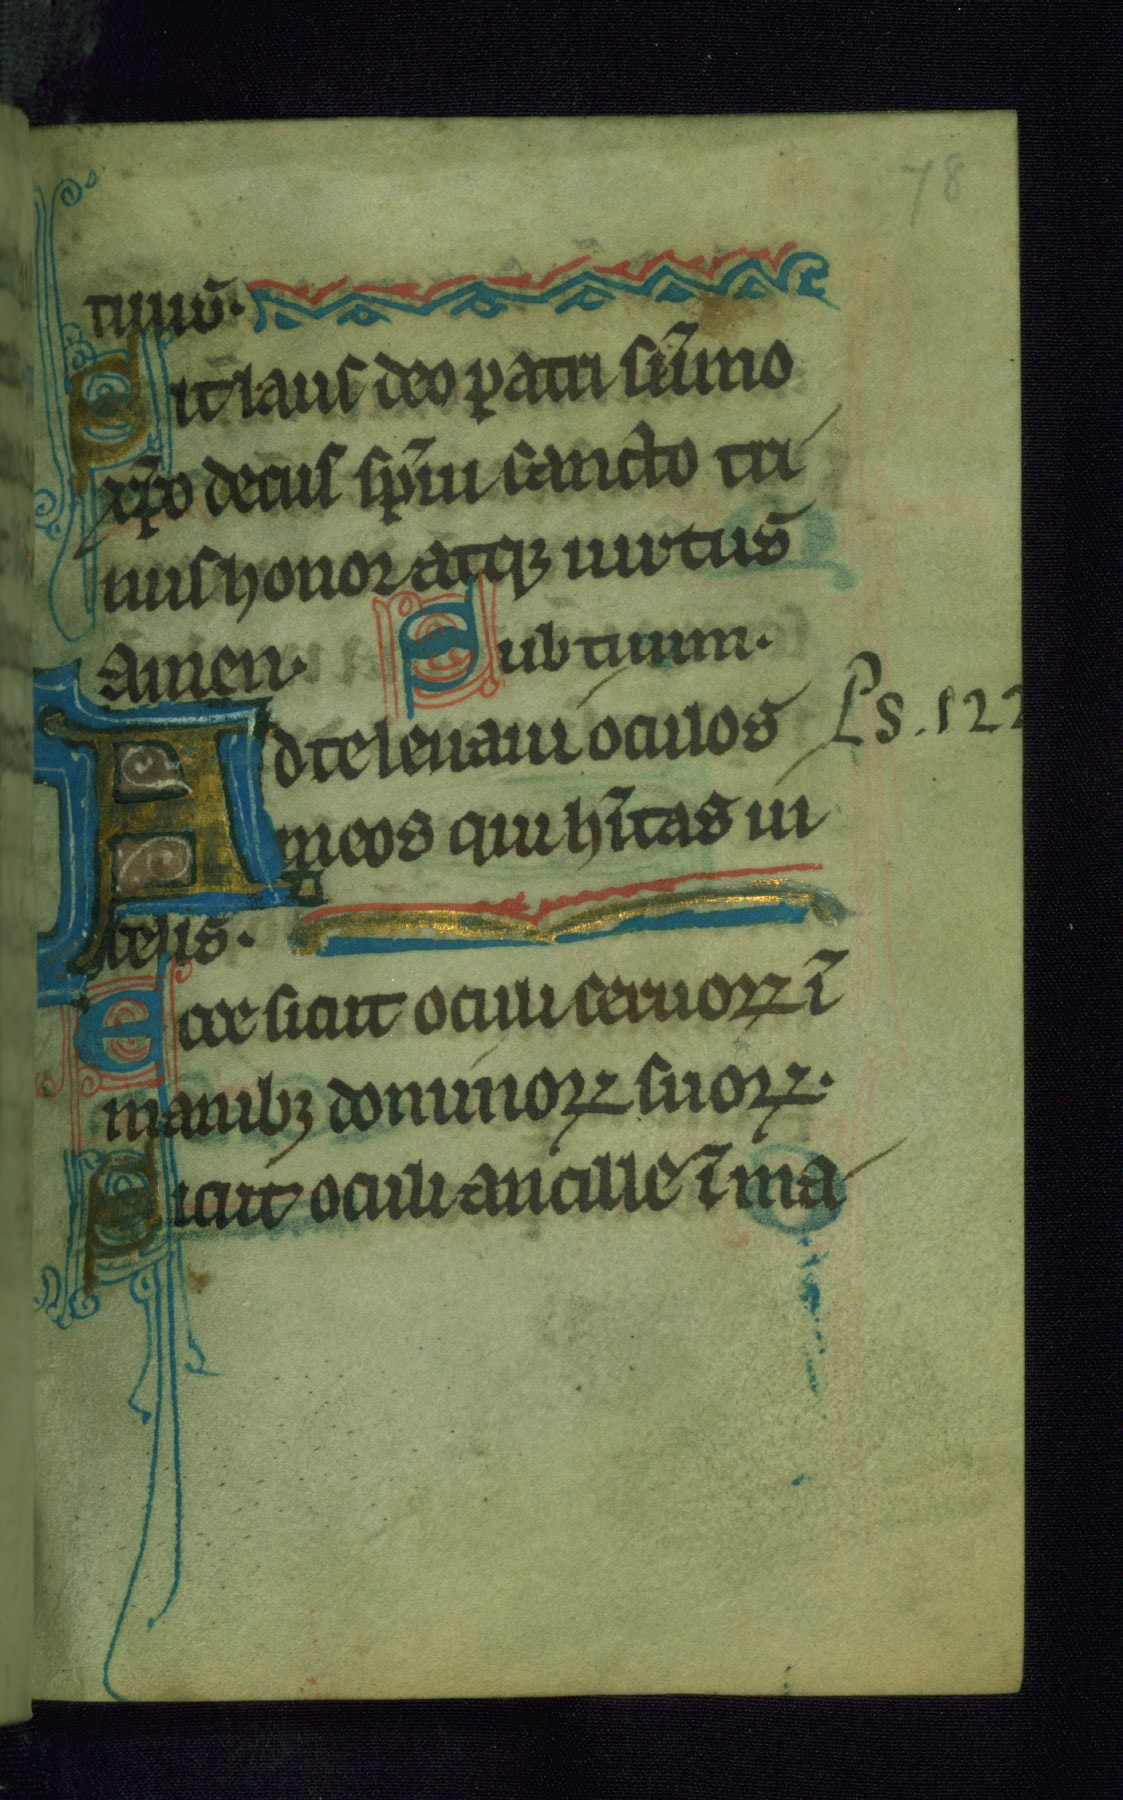 78
tuum̄.
Sit laus deo patri sum̄mo
xp̄o decus sp̄iu sancto tri
nus honor atqꝫ uirtus
amen. Sub tuum.
Ad te leuaui oculos
meos qui hītas in
celis.
Ps. 122
Ecce sicut oculi seruoꝝ ī
manibꝫ dominoꝝ suoꝝ.
Sicut oculi ancille ī ma